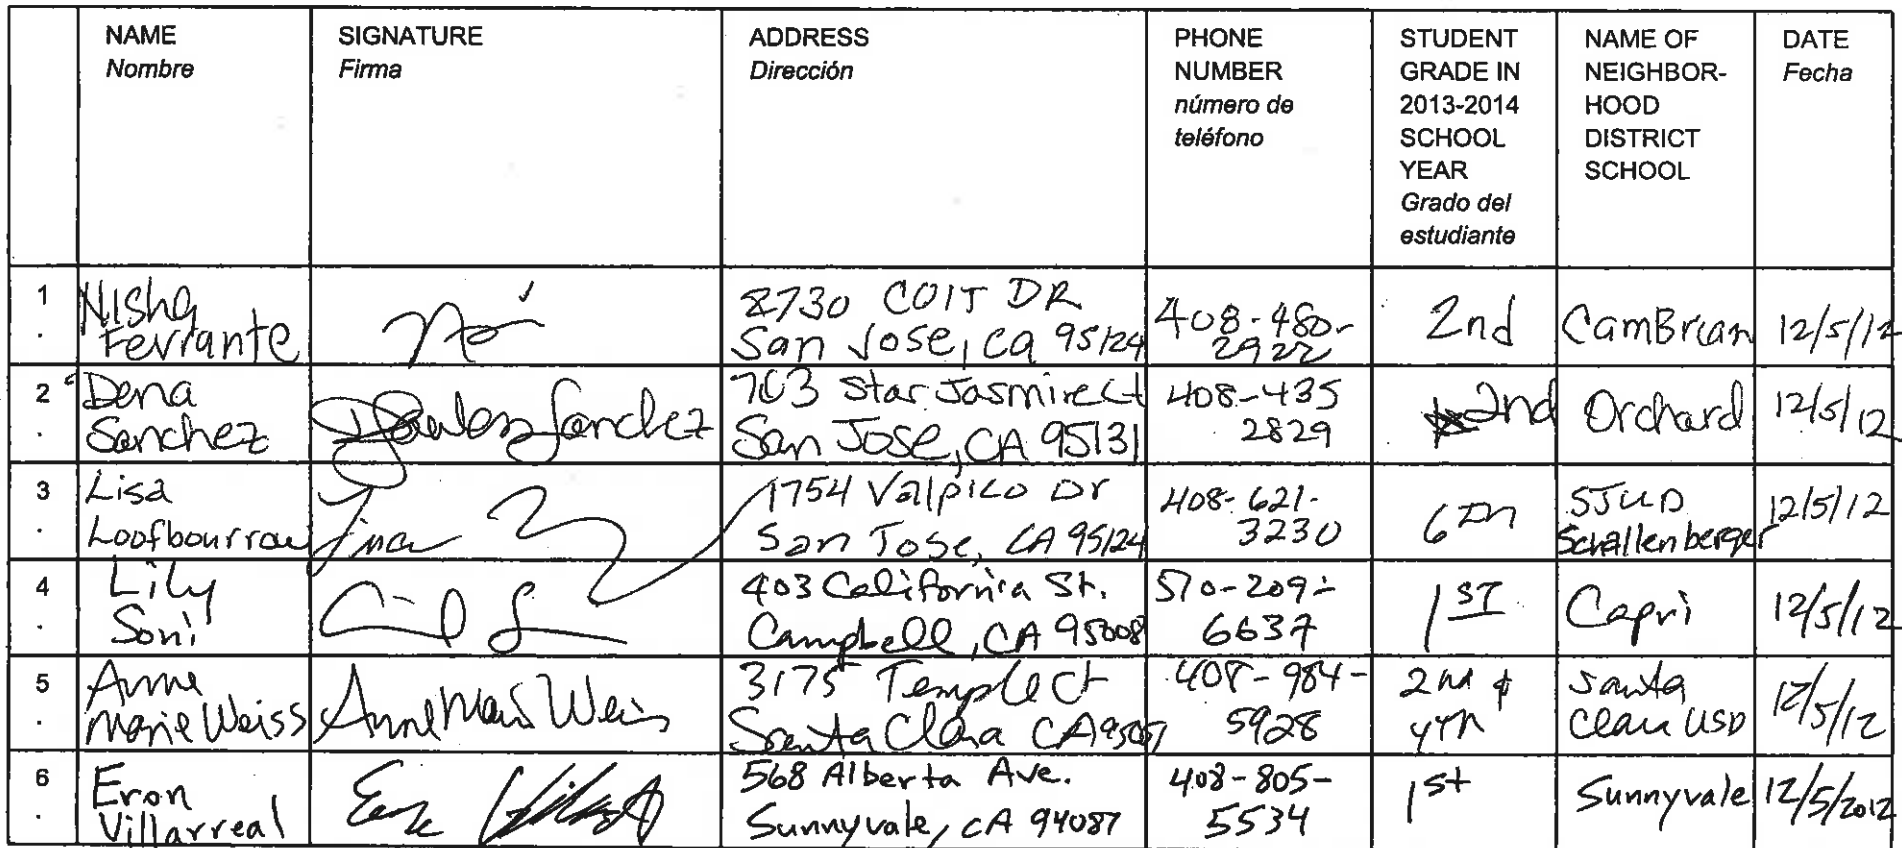 NAME
Nombre
SIGNATURE
Firma
ADDRESS
Dirección
PHONE
NUMBER
número de
teléfono
STUDENT
GRADE IN
2013-2014
SCHOOL
YEAR
Grado del
estudiante
NAME OF
NEIGHBOR-
HOOD
DISTRICT
SCHOOL
DATE
Fecha
1.
Nisha
Ferrante
2730 COIT DR
San Jose, ca 95124
408-480-
2922
2nd
CamBrian
12/5/12
2.
Dena
Sanchez
Sanchez
703 Star Jasmine Ct
San Jose, CA 95131
408-435
2829
2nd
Orchard
12/5/12
3.
Lisa
Loofbourrow
1754 Valpico Dr
San Jose, CA 95124
408-621-
3230
6th
SJUD
Schallenberger
12/5/12
4.
Lily
Soni
403 California St.
Campbell, CA 95008
510-209-
6637
1ST
Capri
12/5/12
5.
Anne
Marie Weiss
Anne Marie Weiss
3175 Temple Ct
Santa Clara CA 95051
408-984-
5928
2nd &
4th
Santa
Clara USD
12/5/12
6.
Eron
Villarreal
568 Alberta Ave.
Sunnyvale, CA 94087
408-805-
5534
1st
Sunnyvale
12/5/2012